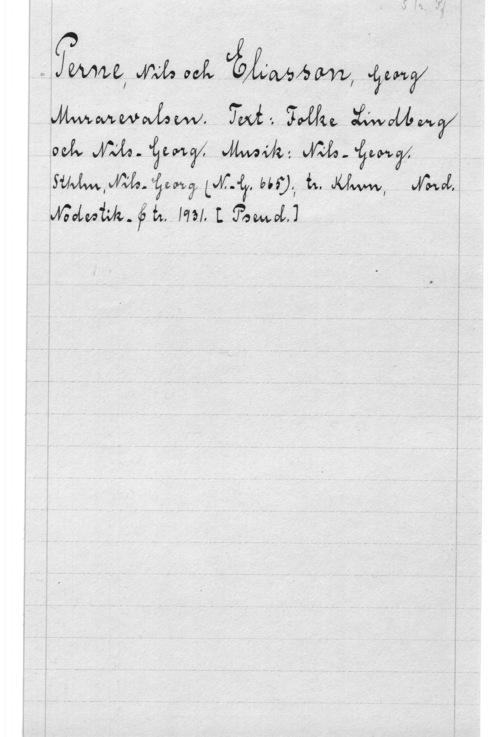 Perne, Nils och Eliasson, Georg
Murarevalsen. Text: Folke Lindberg
och Nils-Georg. Musik: Nils-Georg.
Sthlm, Nils-Georg (N.-G. 665), tr. Khvn, Nord.
Nodestik- & tr. 1931. [Pseud.]